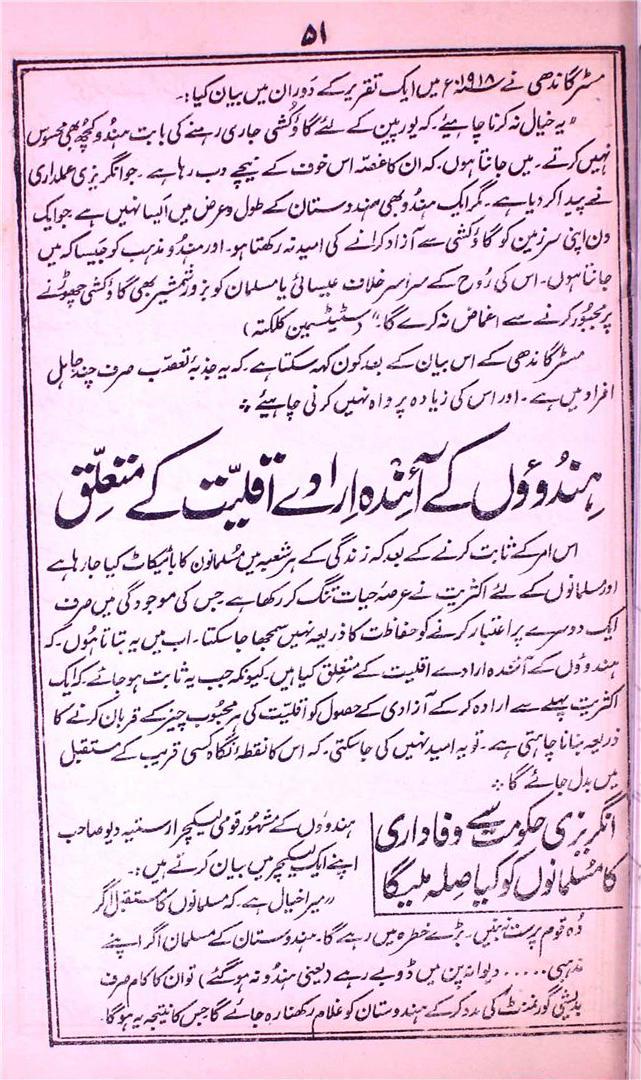 ۵۱
مسٹر گاندھی نے ۱۹۱۸ء میں ایک تقریر کے دوران میں بیان کیا:۔
"یہ خیال نہ کرنا چاہیئے۔ کہ یورپین کے لئے گاؤ کُشی جاری رہنے کی بابت ہندو کچھ بھی محسوس
نہیں کرتے۔ میں جانتا ہوں۔ کہ ان کا غصّہ اس خوف کے نیچے دب رہا ہے۔ جو انگریزی عملداری
نے پیدا کر دیا ہے۔ مگر ایک ہندو بھی ہندوستان کے طول و عرض میں ایسا نہیں ہے جو ایک
دن اپنی سرزمین کو گاؤ کُشی سے آزاد کرانے کی امید نہ رکھتا ہو۔ اور ہندو مذہب کو جیسا کہ میں
جانتا ہوں۔ اس کی رُوح کے سراسر خلاف عیسائی یا مسلمان کو بزورِ شمشیر بھی گاؤ کشی چھوڑنے
پر مجبُور کرنے سے اغماض نہ کرے گا۔" (سٹیٹسمین کلکتہ)
مسٹر گاندھی کے اس بیان کے بعد کون کہہ سکتا ہے۔ کہ یہ جذبۂ تعصّب صرف چند جاہل
افراد میں ہے۔ اور اس کی زیادہ پرواہ نہیں کرنی چاہیئے ؞
ہندوؤں کے آئندہ ارادے اقلیّت کے متعلّق
اس امر کے ثابت کرنے کے بعد کہ زندگی کے ہر شعبہ میں مُسلمانوں کا بائیکاٹ کیا جا رہا ہے
اور مسلمانوں کے لئے اکثریت نے عرصۂ حیات تنگ کر رکھا ہے جس کی موجودگی میں صرف
ایک دوسرے پر اعتبار کرنے کو حفاظت کا ذریعہ نہیں سمجھا جا سکتا۔ اب میں یہ بتاتا ہُوں۔ کہ
ہندوؤں کے آئندہ ارادے اقلیت کے متعلق کیا ہیں۔ کیونکہ جب یہ ثابت ہو جائے۔ کہ ایک
اکثریت پہلے سے ارادہ کر کے آزادی کے حصول کو اقلیّت کی ہر محبُوب چیز کے قربان کرنے کا
ذریعہ بنانا چاہتی ہے۔ تو یہ امید نہیں کی جا سکتی۔ کہ اس کا نقطۂ نگاہ کسی قریب کے مستقبل
میں بدل جائے گا ؞
انگریزی حکومت سے وفاداری
کا مُسلمانوں کو کیا صلہ ملیگا
ہندوؤں کے مشہُور قومی لیکچرار ستیہ دیو صاحب
اپنے ایک لیکچر میں بیان کرتے ہیں:۔
"میرا خیال ہے۔ کہ مسلمانوں کا مستقبل اگر
وُہ قوم پرست نہ بنیں۔ بڑے خطرہ میں رہے گا۔ ہندوستان کے مسلمان اگر اپنے
مذہبی..... دیوانہ پن میں ڈوبے رہے (یعنی ہندو نہ ہو گئے) تو ان کا کام صرف
بدیشی گورنمنٹ کی مدد کر کے ہندوستان کو غلام رکھنا رہ جائے گا جس کا نتیجہ یہ ہو گا۔